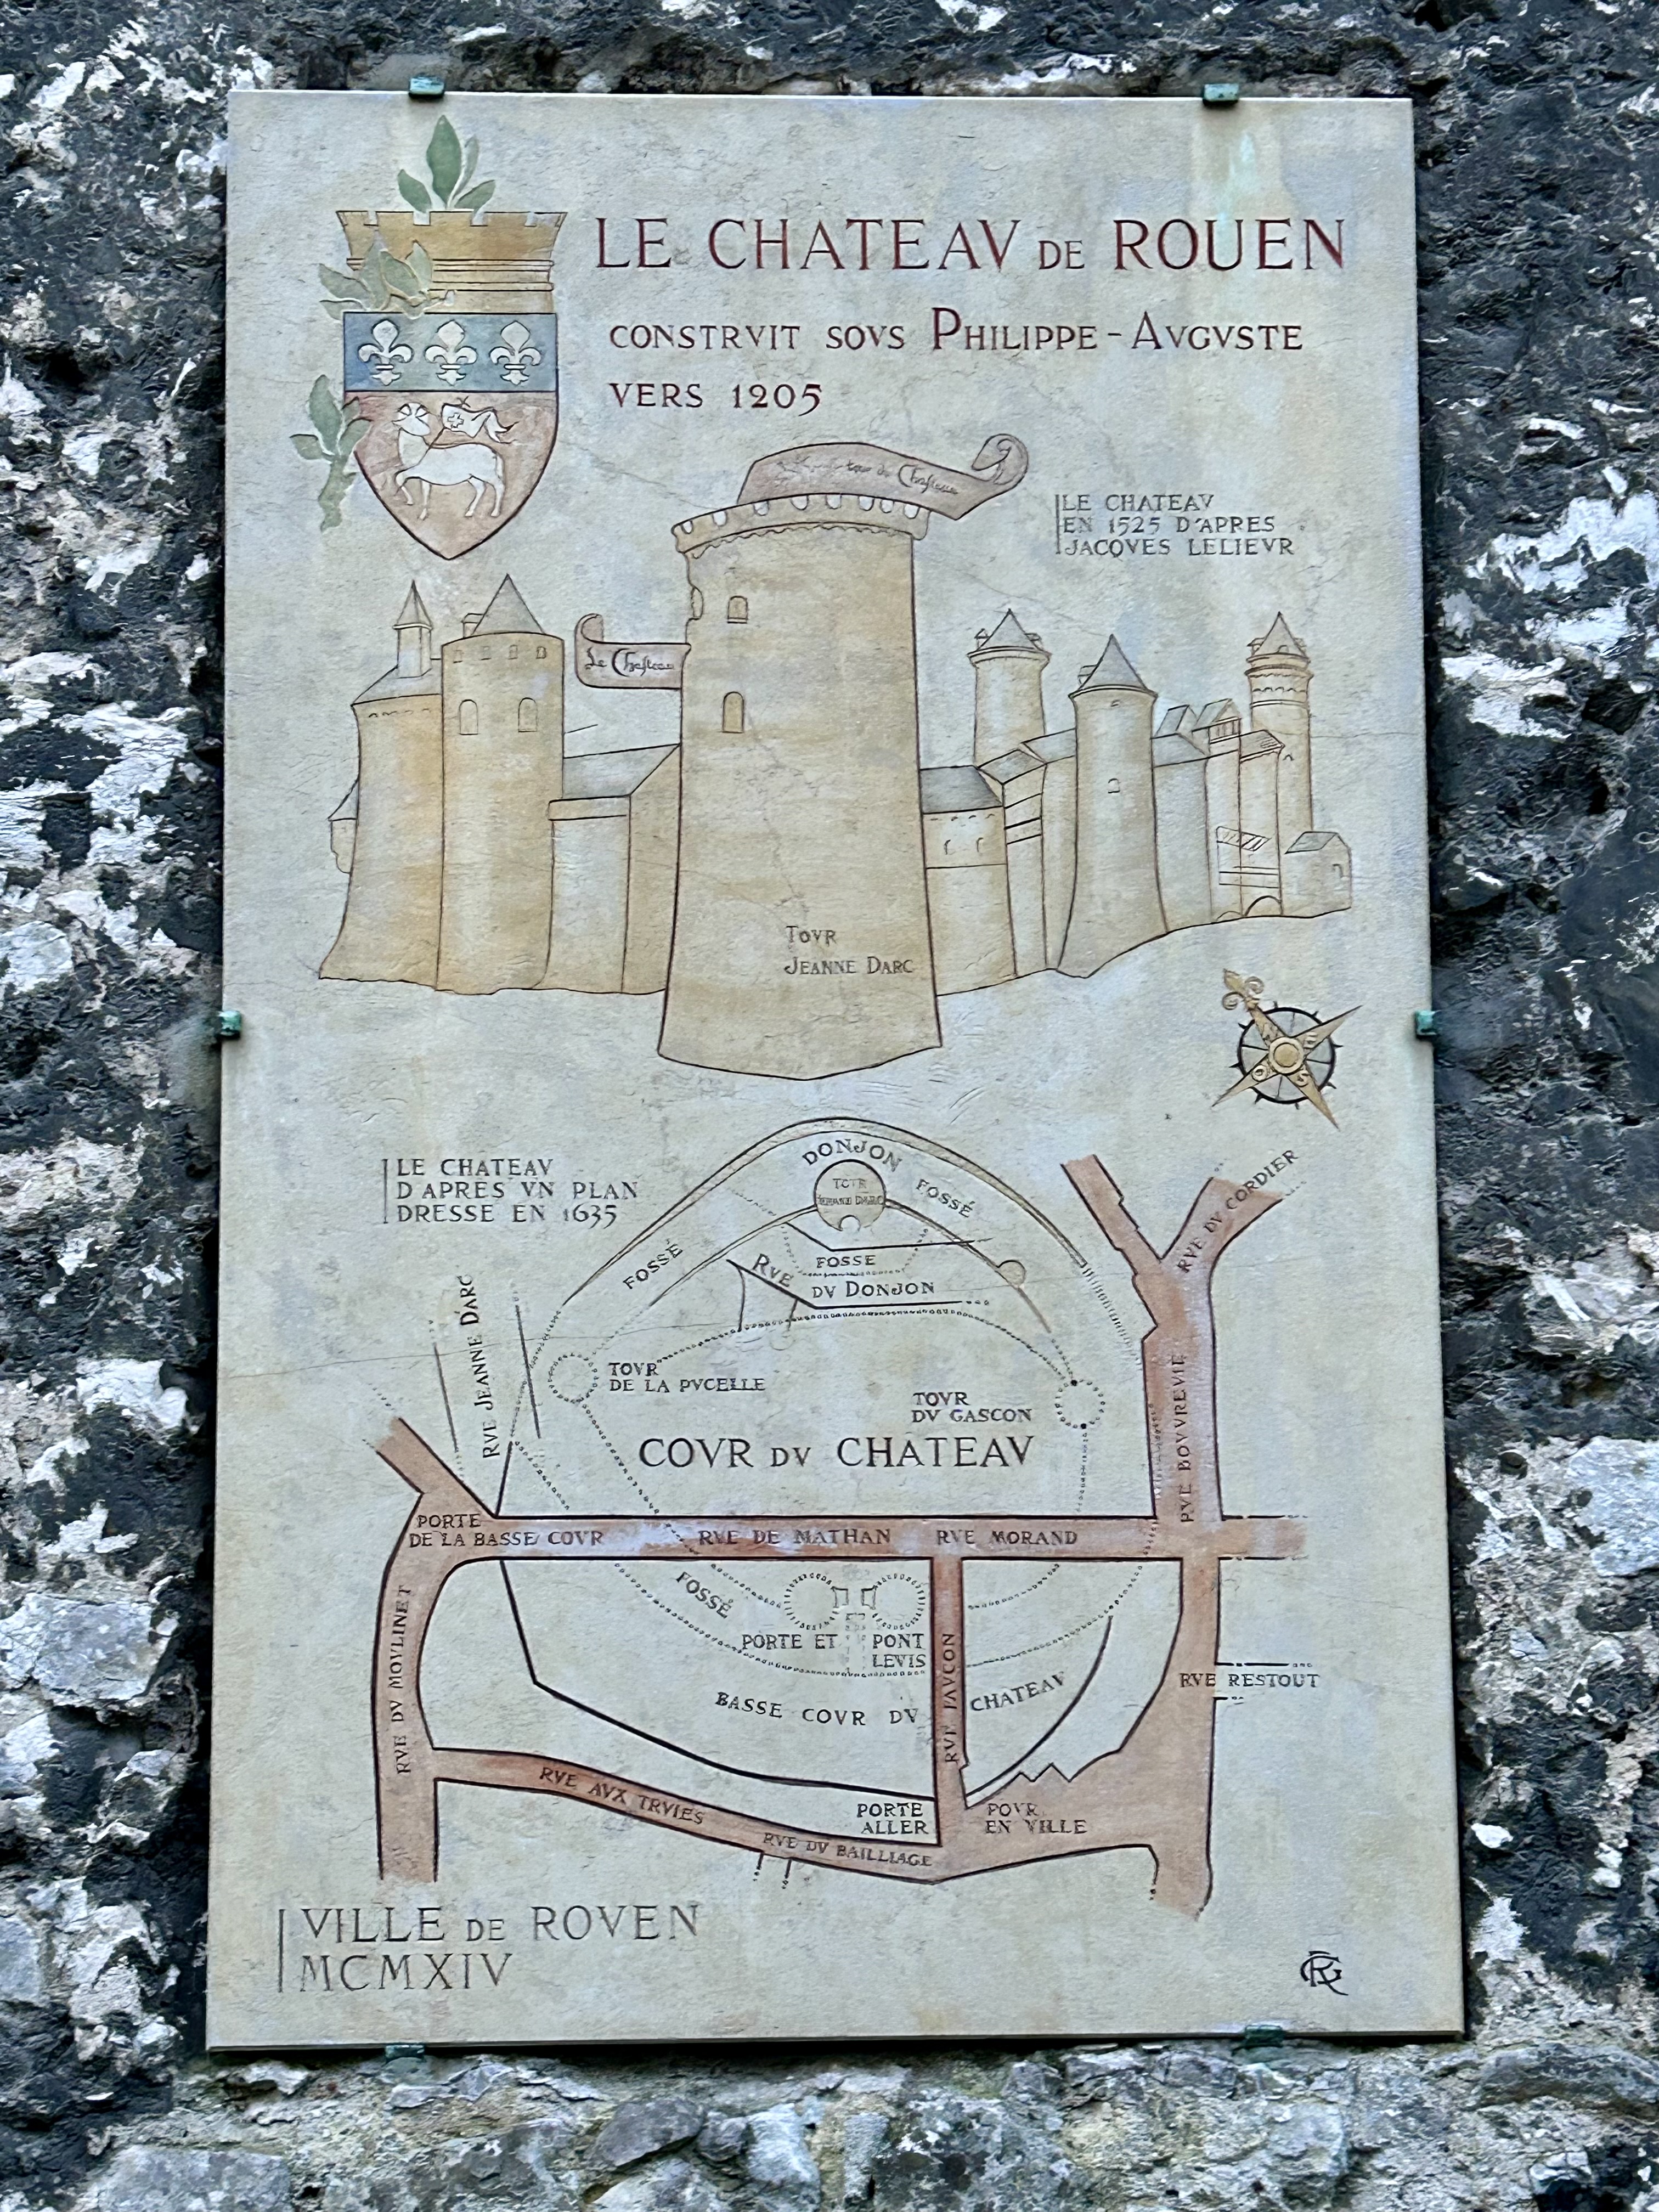 LE CHATEAV DE ROUEN
CONSTRVIT SOVS PHILIPPE-AVGVSTE
VERS 1205
tour du Chasteau
LE CHATEAV
EN 1525 D'APRES
JACQVES LELIEVR
Le Chasteau
TOVR
JEANNE DARC
N
E
S
O
LE CHATEAV
D'APRES VN PLAN
DRESSE EN 1635
DONJON
TOVR
JEANNE DARC
FOSSÉ
FOSSÉ
FOSSE
RVE DV DONJON
RVE DV CORDIER
RVE JEANNE D'ARC
TOVR
DE LA PVCELLE
TOVR
DV GASCON
COVR DV CHATEAV
RVE BOVVREVIE
PORTE
DE LA BASSE COVR
RVE DE MATHAN
RVE MORAND
FOSSÉ
PORTE ET PONT
LEVIS
RVE DV MOVLINET
RVE FAVCON
BASSE COVR DV CHATEAV
RVE RESTOUT
RVE AVX TRVIES
RVE DV BAILLIAGE
PORTE POVR
ALLER EN VILLE
VILLE DE ROVEN
MCMXIV